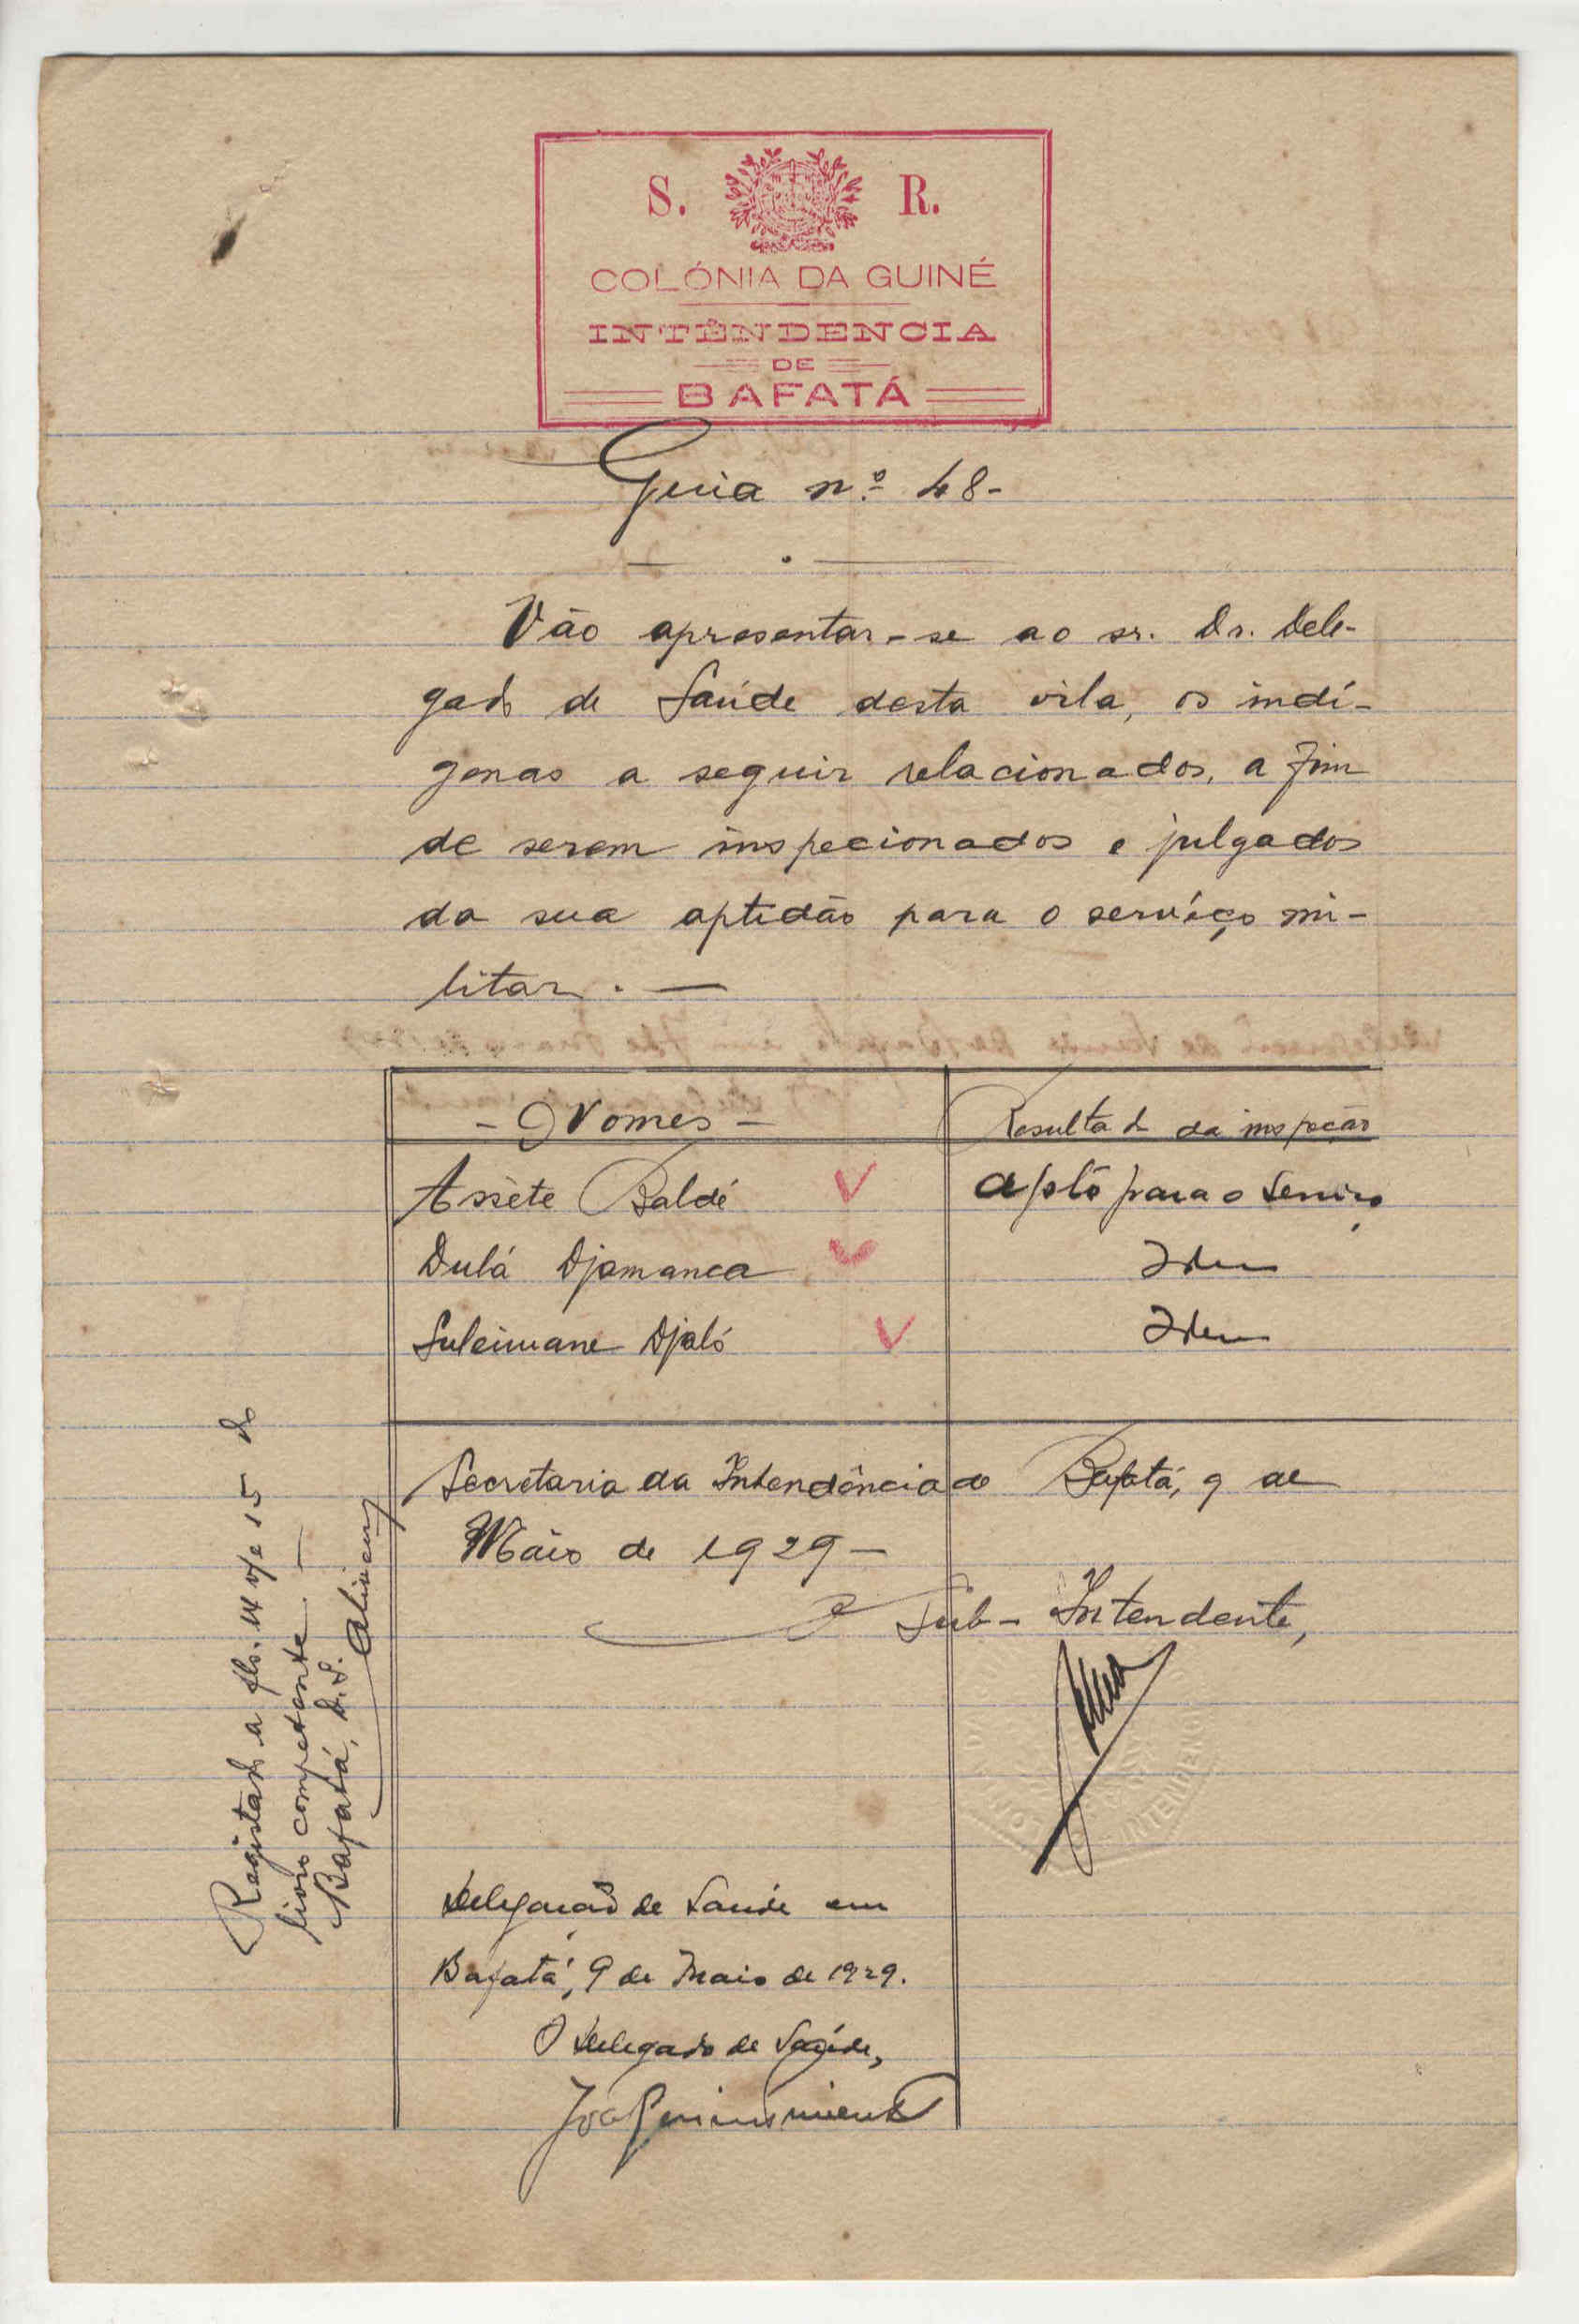 S. R.
COLÓNIA DA GUINÉ
INTÊNDENCIA
DE
BAFATÁ
Guia nº 48-
Vão apresentar-se ao sr. Dr. Dele-
gado de Saúde desta vila, os indí-
genas a seguir relacionados, a fim
de serem inspecionados e julgados
da sua aptidão para o serviço mi-
litar. —
- Nomes - Resultado da inspeção
Assète Baldé apto para o serviço
Dulá Djamanca Idem
Suleimane Djaló Idem
Secretaria da Intendência de Bafatá, 9 de
Maio de 1929 —
O Sub-Intendente,
INTENDENCIA
Delegação de Saúde em
Bafatá, 9 de Maio de 1929.
O Delegado de Saúde,
Registado a fls. 14 v/ e 15 do
livro competente. —
Bafatá, D.S.